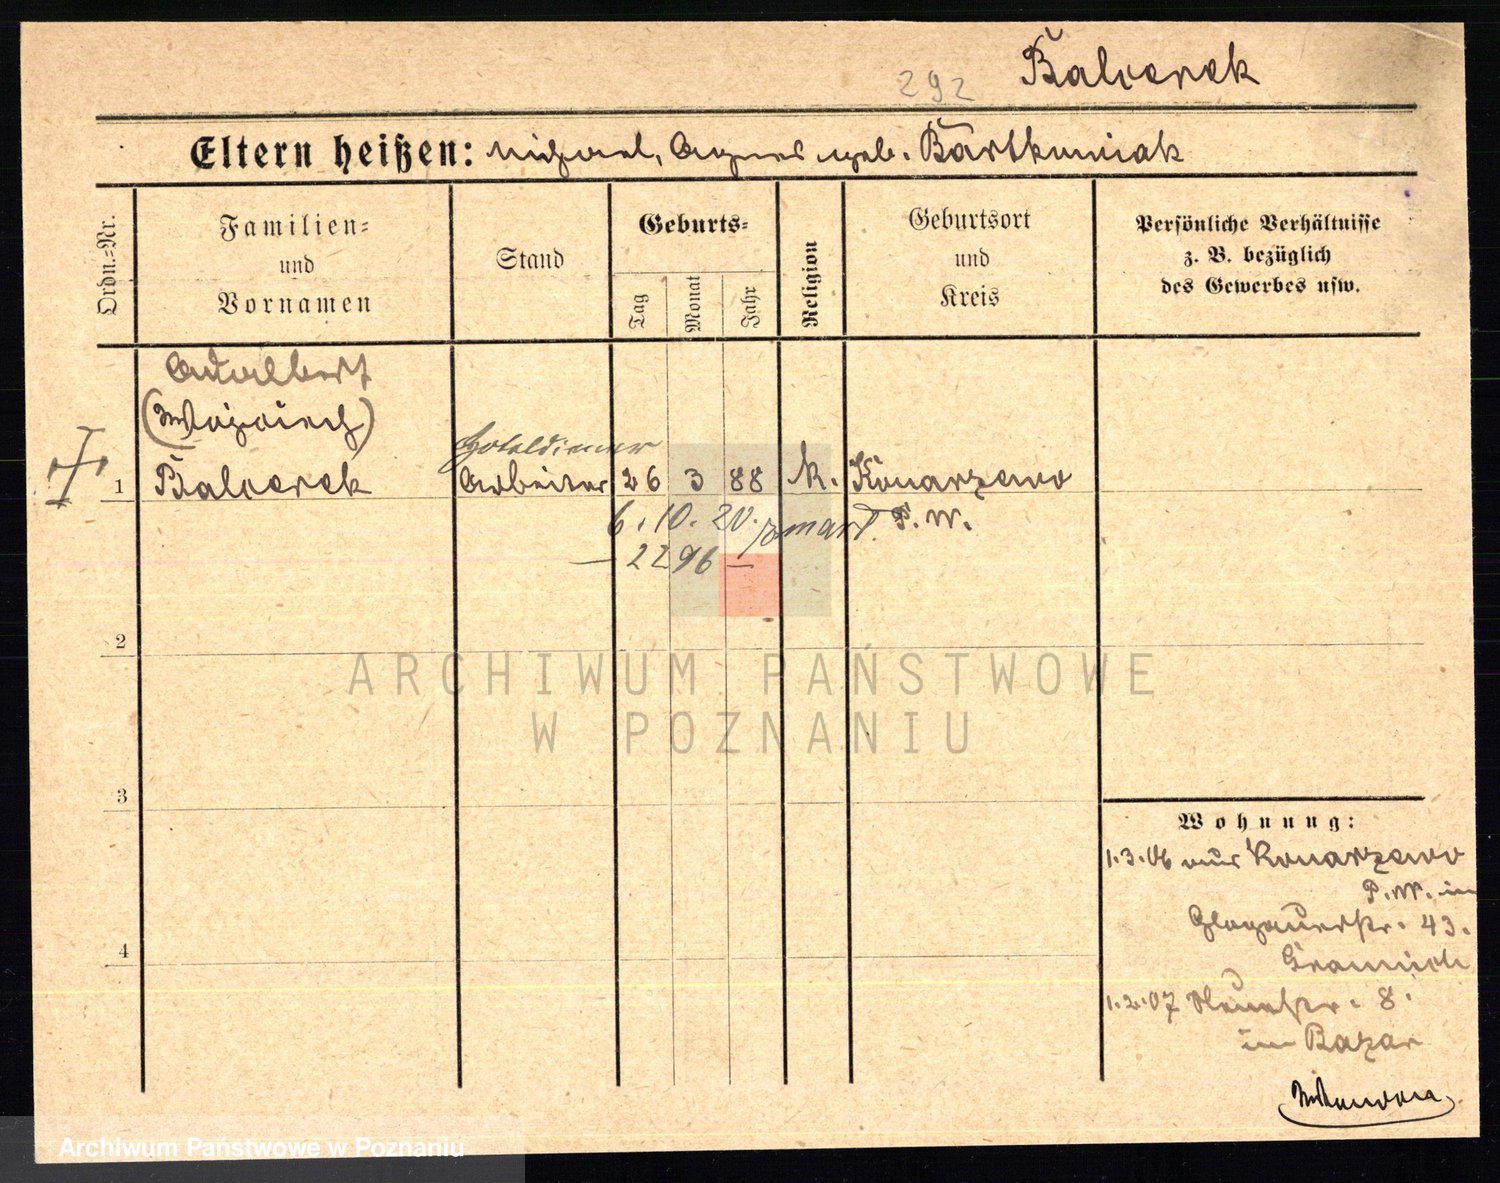 292 Balcerek
Eltern heißen: Michael, Agnes geb. Bartkowiak
Ordn.-Nr.
Familien-
und
Vornamen
Stand
Geburts-
Tag
Monat
Jahr
Religion
Geburtsort
und
Kreis
Persönliche Verhältnisse
z. B. bezüglich
des Gewerbes usw.
Adalbert
(Wojciech)
Hoteldiener
1 Balcerek Arbeiter 26 3 88 k. Konarzewo
6. 10. 20. zmarł P. W.
— 2296 —
2
3
4
Wohnung:
1.3.06 aus Konarzewo
P. W. in
Glogauerstr. 43.
1.2.07 Neuestr. 8.
im Bazar
ARCHIWUM PAŃSTWOWE
W POZNANIU
Archiwum Państwowe w Poznaniu